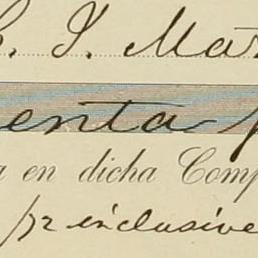 I. Mar
enta
en dicha Comp
72 inclusive